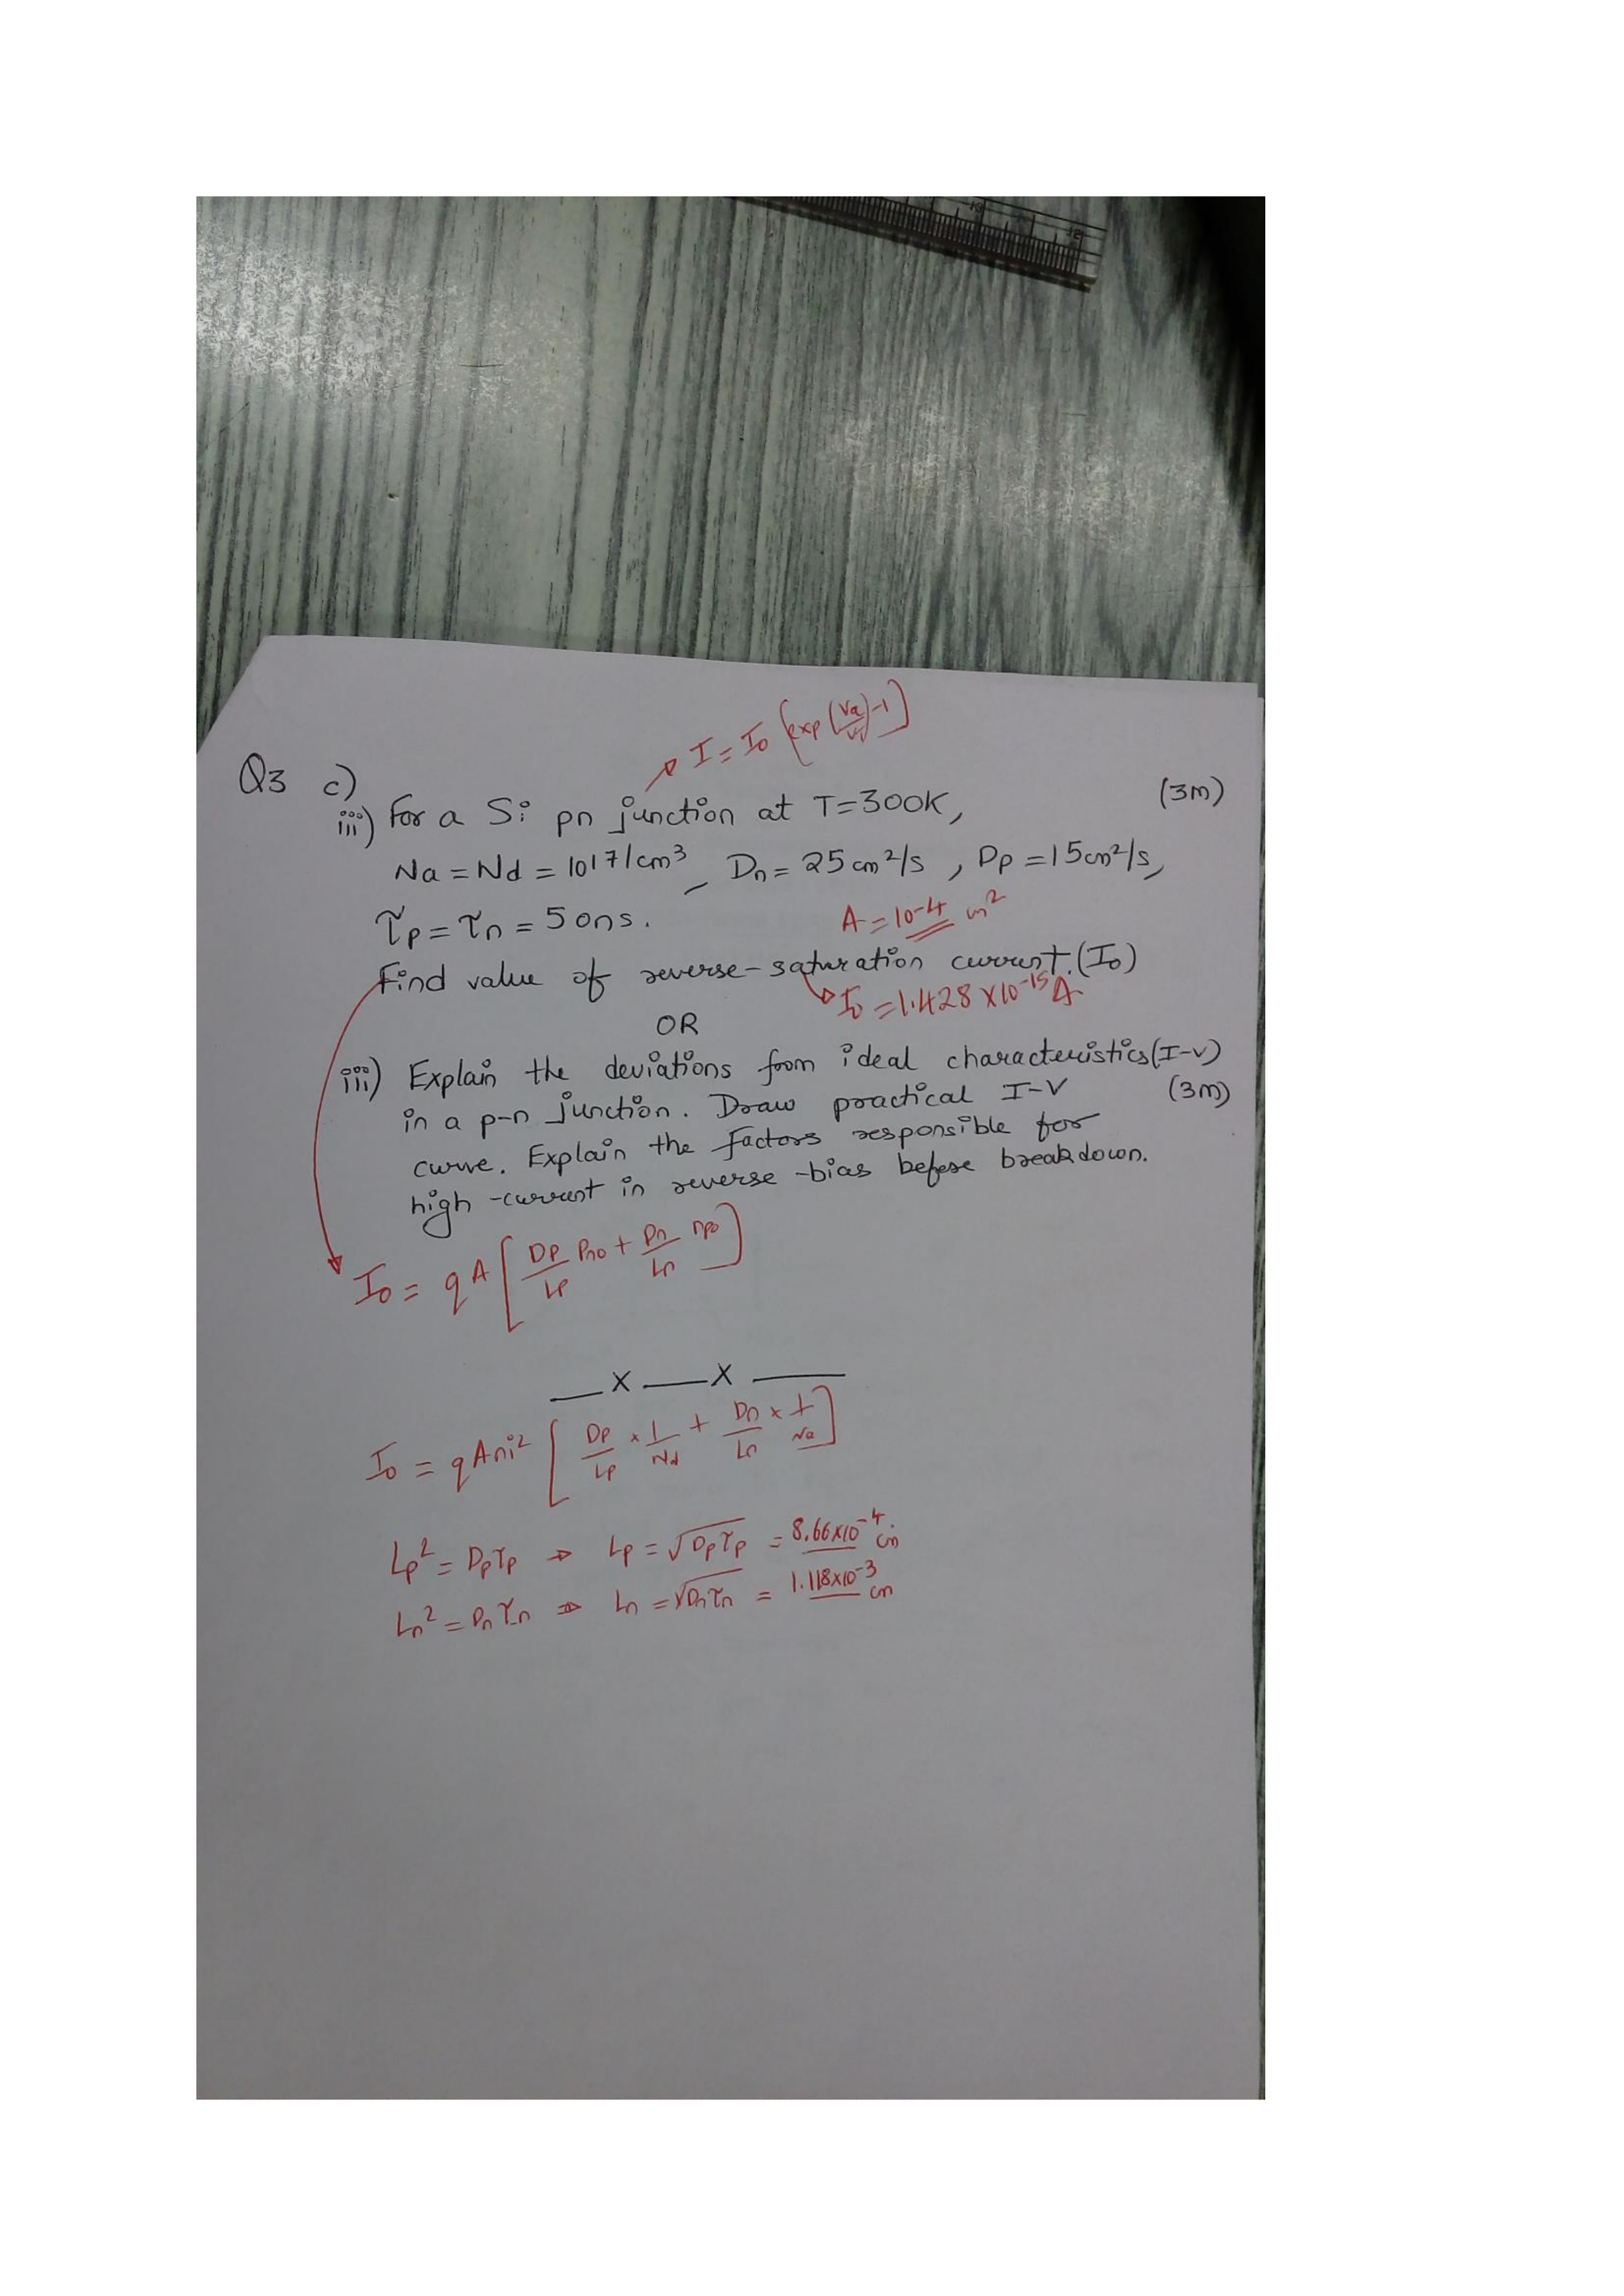 I = I₀ [exp(Va/VT) - 1]
Q3 c)
iii) For a Si pn junction at T=300K, (3m)
Na = Nd = 10^17/cm³, Dn = 25cm²/s, Dp = 15cm²/s,
τp = τn = 50ns. A = 10^-4 cm²
Find value of reverse-saturation current.(I₀)
I₀ = 1.428 X 10^-15 A
OR
iii) Explain the deviations from ideal characteristics(I-V)
in a p-n junction. Draw practical I-V (3m)
curve. Explain the factors responsible for
high-current in reverse-bias before breakdown.
I₀ = qA [Dp/Lp Pno + Dn/Ln npo]
__X__X__
I₀ = qAni² [Dp/Lp × 1/Nd + Dn/Ln × 1/Na]
Lp² = Dpτp ⇒ Lp = √Dpτp = 8.66×10^-4 cm
Ln² = Dnτn ⇒ Ln = √Dnτn = 1.118×10^-3 cm